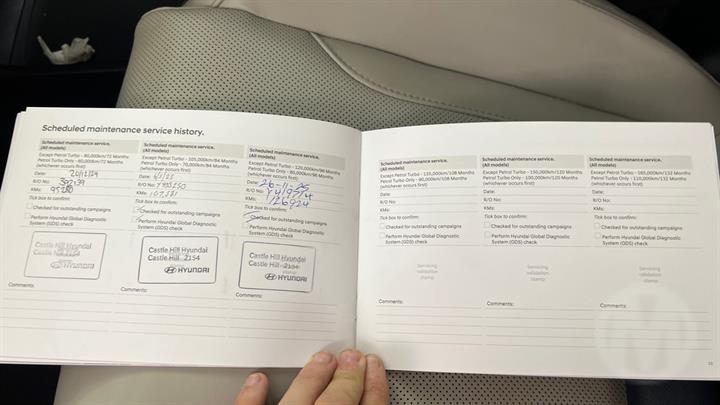 Scheduled maintenance service history.
Scheduled maintenance service.
(All models)
Except Petrol Turbo - 90,000km/72 Months
Petrol Turbo Only - 60,000km/72 Months
(whichever occurs first)
Date: 20/12/24
R/O No:
KMs:
Tick box to confirm:
Checked for outstanding campaigns
Perform Hyundai Global Diagnostic
System (GDS) check
Castle Hill Hyundai
Castle Hill 2154
HYUNDAI
Comments:
Scheduled maintenance service.
(All models)
Except Petrol Turbo - 105,000km/84 Months
Petrol Turbo Only - 70,000km/84 Months
(whichever occurs first)
Date:
R/O No:
KMs:
Tick box to confirm:
Checked for outstanding campaigns
Perform Hyundai Global Diagnostic
System (GDS) check
Castle Hill Hyundai
Castle Hill 2154
HYUNDAI
Comments:
Scheduled maintenance service.
(All models)
Except Petrol Turbo - 120,000km/96 Months
Petrol Turbo Only - 80,000km/96 Months
(whichever occurs first)
Date: 26-11-25
R/O No:
KMs: 126924
Tick box to confirm:
Checked for outstanding campaigns
Perform Hyundai Global Diagnostic
System (GDS) check
Castle Hill Hyundai
Castle Hill 2154
HYUNDAI
Comments:
Scheduled maintenance service.
(All models)
Except Petrol Turbo - 135,000km/108 Months
Petrol Turbo Only - 90,000km/108 Months
(whichever occurs first)
Date:
R/O No:
KMs:
Tick box to confirm:
Checked for outstanding campaigns
Perform Hyundai Global Diagnostic
System (GDS) check
Servicing
validation
stamp
Comments:
Scheduled maintenance service.
(All models)
Except Petrol Turbo - 150,000km/120 Months
Petrol Turbo Only - 100,000km/120 Months
(whichever occurs first)
Date:
R/O No:
KMs:
Tick box to confirm:
Checked for outstanding campaigns
Perform Hyundai Global Diagnostic
System (GDS) check
Servicing
validation
stamp
Comments:
Scheduled maintenance service.
(All models)
Except Petrol Turbo - 165,000km/132 Months
Petrol Turbo Only - 110,000km/132 Months
(whichever occurs first)
Date:
R/O No:
KMs:
Tick box to confirm:
Checked for outstanding campaigns
Perform Hyundai Global Diagnostic
System (GDS) check
Servicing
validation
stamp
Comments: